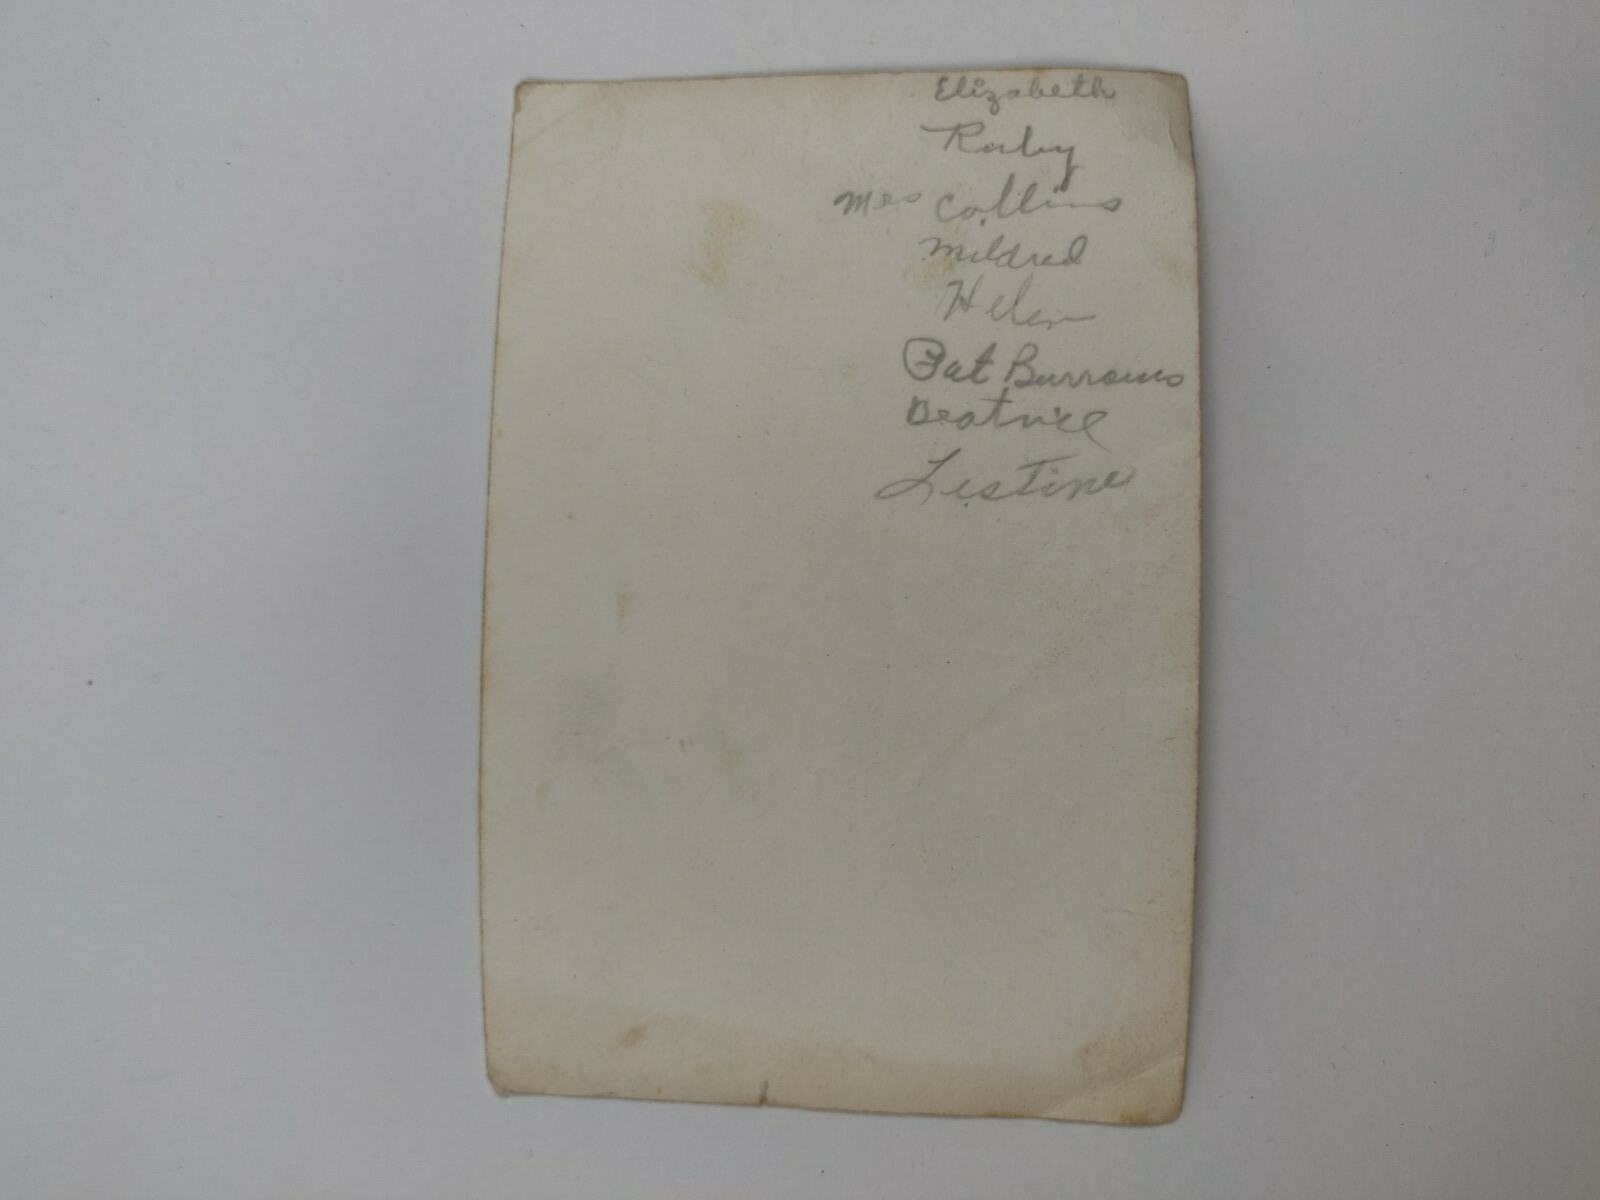 Elizabeth
Ruby
Mrs Collins
Mildred
Helen
Pat Burrows
Beatrice
Lestine